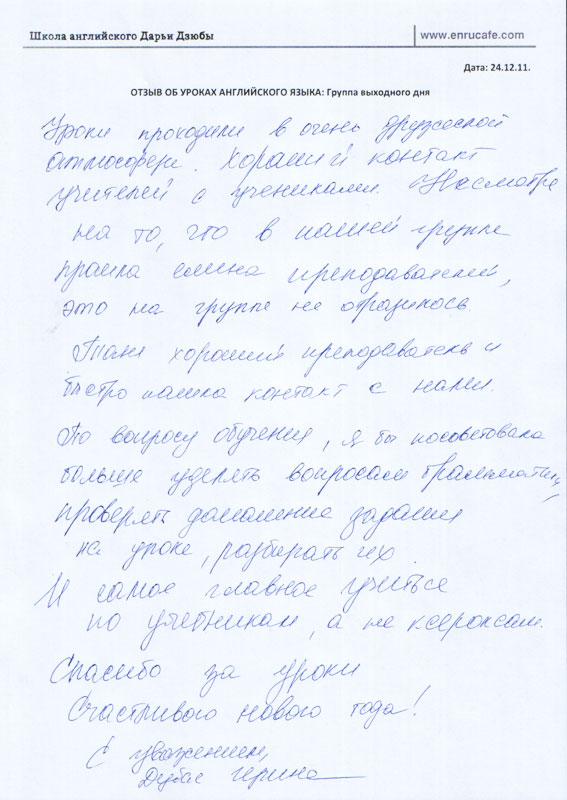 Школа английского Дарьи Дзюбы
www.enrucafe.com
Дата: 24.12.11.
ОТЗЫВ ОБ УРОКАХ АНГЛИЙСКОГО ЯЗЫКА: Группа выходного дня
Уроки проходили в очень дружеской
атмосфере. Хороший контакт
учителей с учениками. Несмотря
на то, что в нашей группе
прошла смена преподавателей,
это на группе не отразилось
Таня хороший преподаватель и
быстро нашла контакт с нами.
По вопросу обучения, я бы посоветовала
больше уделять вопросам грамматики,
проверять домашние задания
на уроке, разбирать их.
И самое главное учиться
по учебникам, а не ксероксам.
Спасибо за уроки
Счастливого нового года!
С уважением,
Ирина